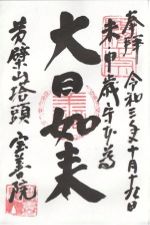 奉拝 令和三年十月十九日
未申歳守本尊
大日如来
芳廣山塔頭 宝善院